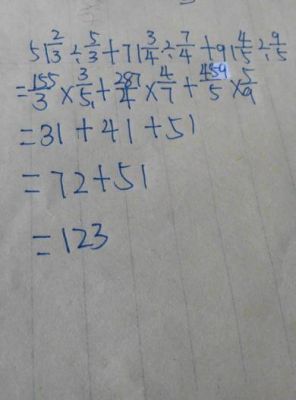 51 2/3 ÷ 5/3 + 71 3/4 ÷ 7/4 + 91 4/5 ÷ 9/5
= 155/3 × 3/5 + 287/4 × 4/7 + 459/5 × 5/9
= 31 + 41 + 51
= 72 + 51
= 123